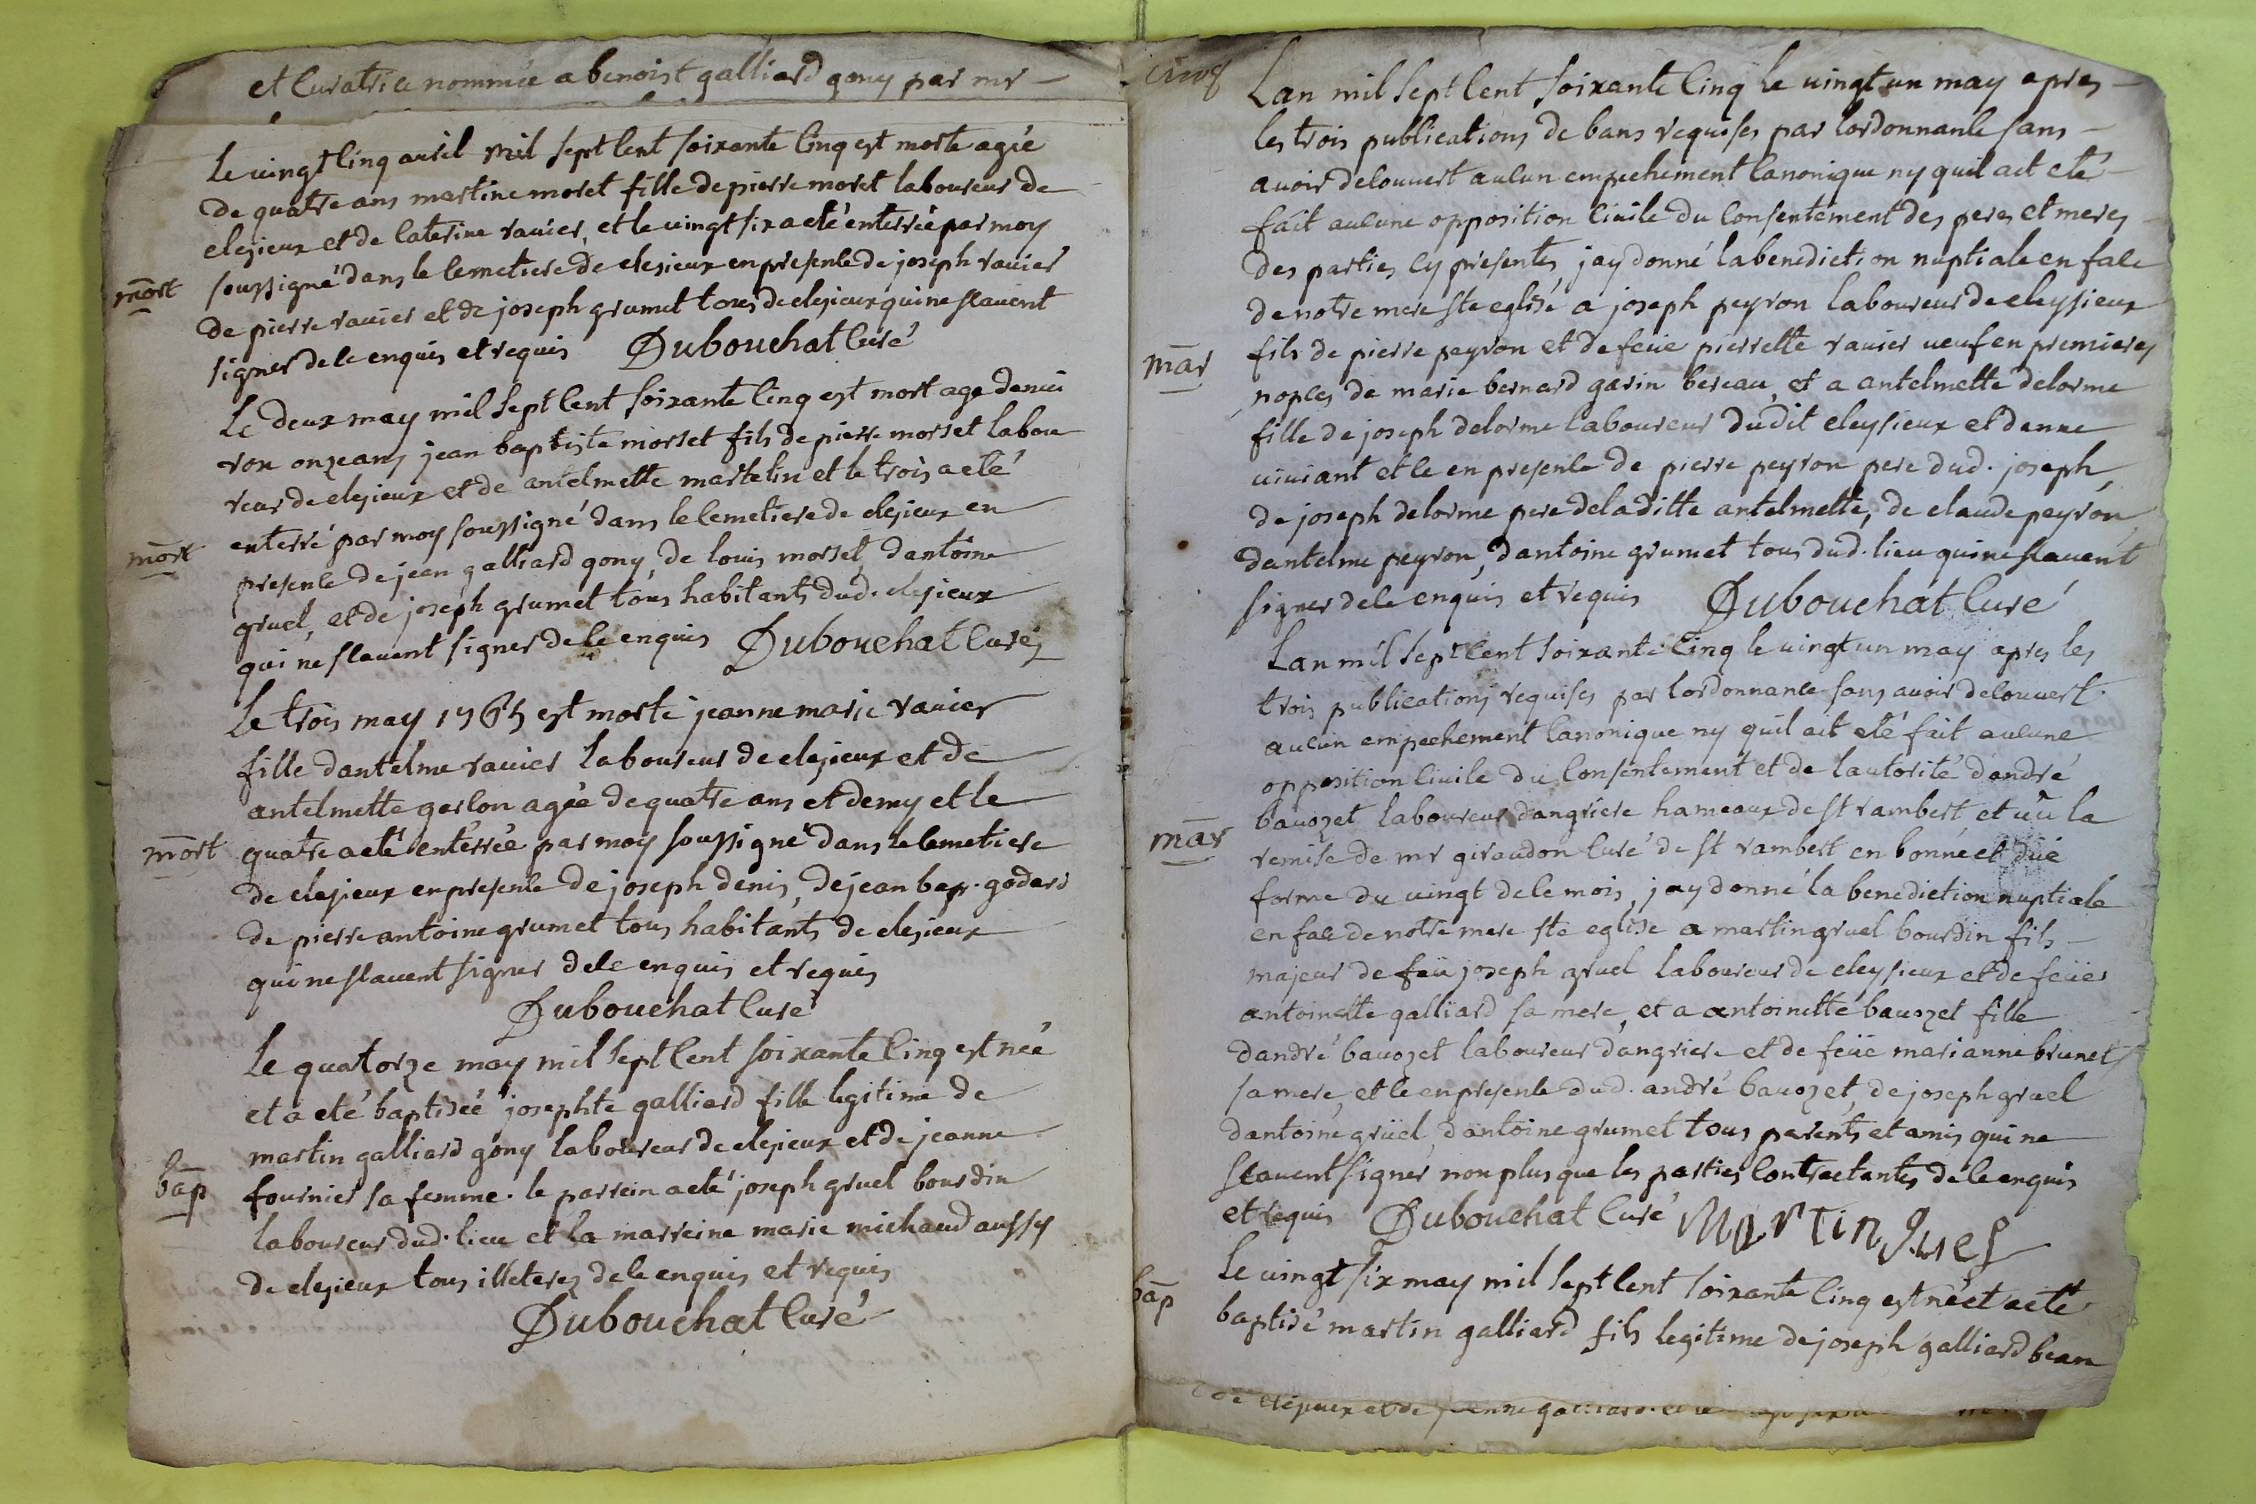 et curatrice nommée a benoist galliard gony par mr
le vingt cinq avril mil sept cent soixante cinq est morte agée
de quatre ans martine moret fille de pierre moret laboureur de
clesieux et de caterine ravier, et le vingt six a eté enterrée par moy
mort
soussigné dans le cemetiere de clesieux en presence de joseph ravier
de pierre ravier et de joseph grumet tous de clesieux qui ne scavent
signer de ce enquis et requis Dubouchat curé
Le deux may mil sept cent soixante cinq est mort age denvi
ron onze ans jean baptiste morset fils de pierre morset labou
reur de clesieux et de antelmette martelin et le trois a eté
mort
enterré par moy soussigné dans le cemetiere de clesieux en
presence de jean galliard gony, de louis morset, dantoine
gruel, et de joseph grumet tous habitants dud. clesieux
qui ne scavent signer de ce enquis Dubouchat curé
Le trois may 1765 est morte jeanne marie ravier
fille dantelme ravier laboureur de clesieux et de
antelmette gerlon agée de quatre ans et demy et le
mort
quatre a eté enterrée par moy soussigné dans le cemetiere
de clesieux en presence de joseph denis, de jean bap. godard
de pierre antoine grumet tous habitants de clesieux
qui ne scavent signer de ce enquis et requis
Dubouchat curé
Le quatorze may mil sept cent soixante cinq est née
et a eté baptisée josephte galliard fille legitime de
martin galliard gony laboureur de clesieux et de jeanne
bap
fournier sa femme. le parrein a eté joseph gruel bourdin
laboureur dud. lieu et la marreine marie michaud aussy
de clesieux tous illeterez de ce enquis et requis
Dubouchat curé
cinq
Lan mil sept cent soixante cinq le vingt un may apres
les trois publications de bans requises par lordonnance sans
avoir decouvert aucun empechement canonique ny quil ait eté
fait aucune opposition civile du consentement des peres et meres
des parties cy presentes, jay donné la benediction nuptiale en face
de notre mere ste eglise a joseph peyron laboureur de cleysieux
mar
fils de pierre peyron et de feüe pierrette ravier veuf en premieres
nopces de marie bernard garin bereau, et a antelmette delorme
fille de joseph delorme laboureur dudit cleysieux et danne
viviant et ce en presence de pierre peyron pere dud. joseph,
de joseph delorme pere de laditte antelmette, de claude peyron,
dantelme peyron, dantoine grumet tous dud. lieu qui ne scavent
signer de ce enquis et requis Dubouchat curé
Lan mil sept cent soixante cinq le vingt un may apres les
trois publications requises par lordonnance sans avoir decouvert
aucun empechement canonique ny quil ait eté fait aucune
opposition civile du consentement et de lautorité dandré
bavozet laboureur dangriere hameaux de st rambert et vû la
mar
remise de mr giraudon curé de st rambert en bonne et düe
forme du vingt de ce mois, jay donné la benediction nuptiale
en face de notre mere ste eglise a martin gruel bourdin fils
majeur de feü joseph gruel laboureur de cleysieux et de feüe
antoinette galliard sa mere, et a antoinette bavozet fille
dandré bavozet laboureur dangriere et de feüe marianne brunet
sa mere, et ce en presence dud. andré bavozet, de joseph gruel
dantoine gruel, dantoine grumet tous parents et amis qui ne
scavent signer non plus que les parties contractantes de ce enquis
et requis Dubouchat curé Martin gruel
bap
Le vingt six may mil sept cent soixante cinq est né et a eté
baptisé martin galliard fils legitime de joseph galliard bean